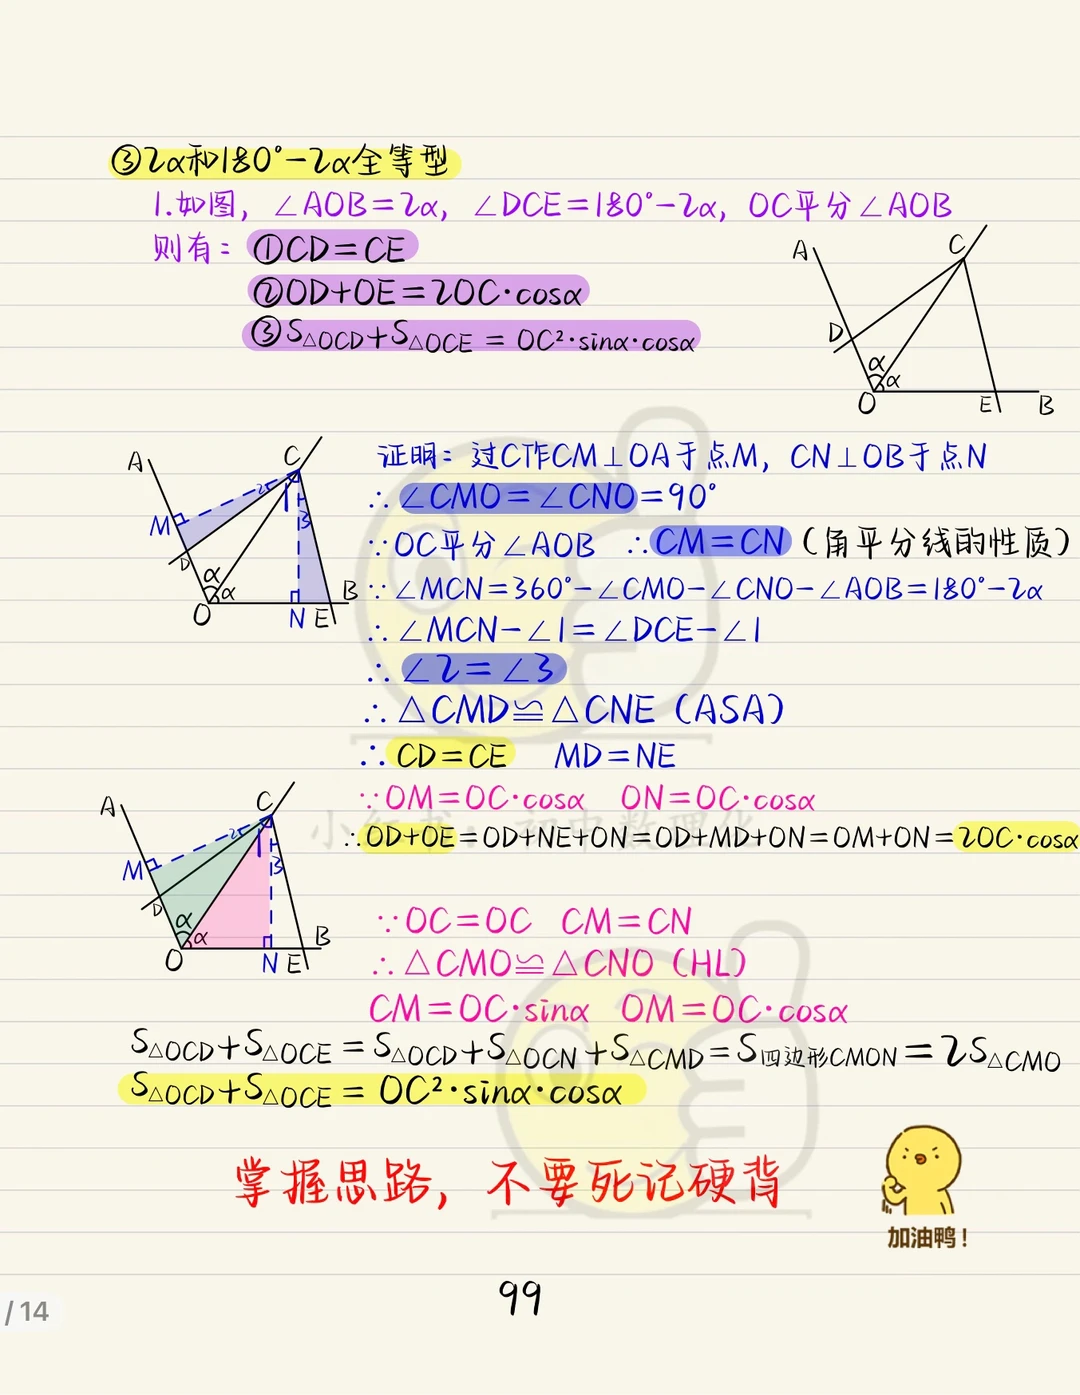 ③2α和180°-2α全等型
1.如图, ∠AOB=2α, ∠DCE=180°-2α, OC平分∠AOB
则有: ①CD=CE
②OD+OE=2OC·cosα
③S△OCD+S△OCE = OC²·sinα·cosα
A
C
D
α
α
O
E
B
A
C
2
1
3
M
D
α
α
O
N
E
B
证明: 过C作CM⊥OA于点M, CN⊥OB于点N
∴ ∠CMO=∠CNO=90°
∵OC平分∠AOB ∴CM=CN (角平分线的性质)
∵∠MCN=360°-∠CMO-∠CNO-∠AOB=180°-2α
∴ ∠MCN-∠1=∠DCE-∠1
∴ ∠2=∠3
∴ △CMD≌△CNE (ASA)
∴ CD=CE MD=NE
∵OM=OC·cosα ON=OC·cosα
∴OD+OE=OD+NE+ON=OD+MD+ON=OM+ON=2OC·cosα
A
C
2
1
3
M
D
α
α
O
N
E
B
∵OC=OC CM=CN
∴ △CMO≌△CNO (HL)
CM=OC·sinα OM=OC·cosα
S△OCD+S△OCE=S△OCD+S△OCN+S△CMD=S四边形CMON=2S△CMO
S△OCD+S△OCE = OC²·sinα·cosα
掌握思路, 不要死记硬背
加油鸭!
99
/14